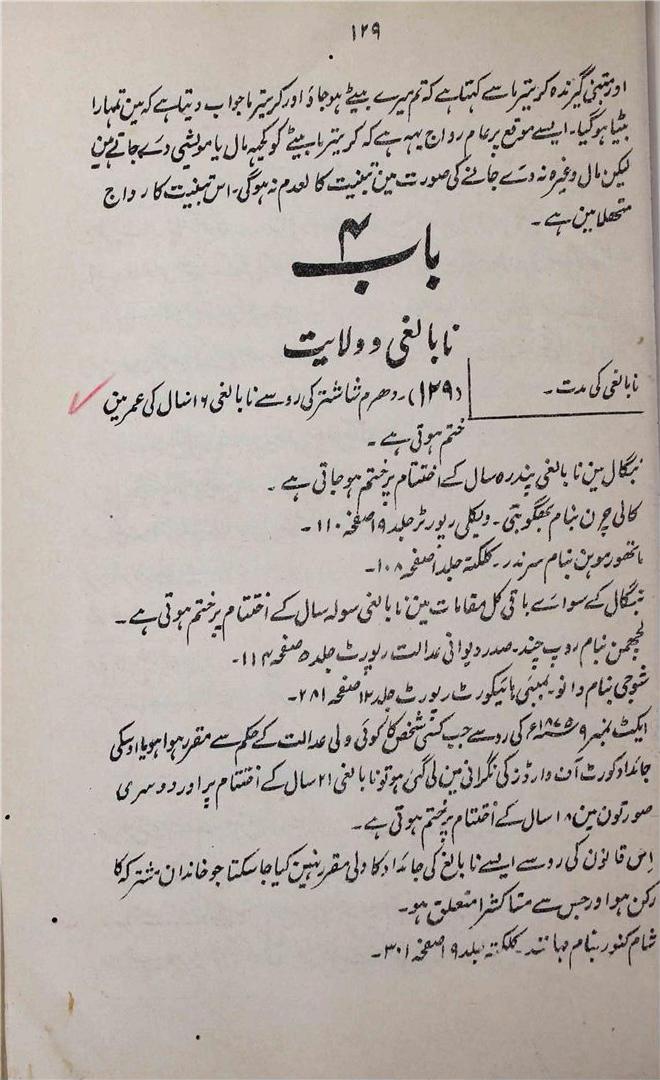 ۱۲۹
اور متبنیٰ گیرندہ کریترما سے کہتا ہے کہ تم میرے بیٹے ہو جاؤ اور کریترما جواب دیتا ہے کہ مین تمہارا
بیٹا ہوگیا۔ ایسے موقع پر عام رواج یہہ ہے کہ کریترما بیٹے کو کچہہ مال یا مویشی دے جاتے ہین
لیکن مال وغیرہ نہ دے جانے کی صورت مین تبنیت کالعدم نہ ہوگی۔ اس تبنیت کا رواج
متھلا مین ہے۔
باب ۴
نابالغی و ولایت
نابالغی کی مدت۔
(۱۲۹)۔ دھرم شاشتر کی رو سے نابالغی ۱۶ سال کی عمر مین
ختم ہوتی ہے۔
بنگال مین نابالغی پندرہ سال کے اختتام پر ختم ہو جاتی ہے۔
کالی چرن بنام بھگوبتی۔ ویکلی رپورٹر جلد ۱۹ صفحہ ۱۱۰۔
ماتھور موہن بنام سرندر۔ کلکتہ جلد ۱ صفحہ ۱۰۸۔
بنگال کے سواے باقی کل مقامات مین نابالغی سولہ سال کے اختتام پر ختم ہوتی ہے۔
لچھمن بنام روپ چند۔ صدر دیوانی عدالت رپورٹ جلد ۵ صفحہ ۱۱۴۔
شوجی بنام دانو۔ بمبئی ہائیکورٹ رپورٹ جلد ۱۲ صفحہ ۲۸۱۔
ایکٹ نمبر ۹ ۱۸۷۵ء کی رو سے جب کسی شخص کا کوئی ولی عدالت کے حکم سے مقرر ہوا ہو یا اوسکی
جائداد کورٹ آف وارڈز کی نگرانی مین لی گئی ہو تو نابالغی ۲۱ سال کے اختتام پر اور دوسری
صورتون مین ۱۸ سال کے اختتام پر ختم ہوتی ہے۔
اِس قانون کی رو سے ایسے نابالغ کی جائداد کا ولی مقرر نہین کیا جا سکتا جو خاندان مشترکہ کا
رکن ہو اور جس سے متاکشرا متعلق ہو۔
شام کنور بنام مہانند۔ کلکتہ جلد ۱۹ صفحہ ۳۰۱۔